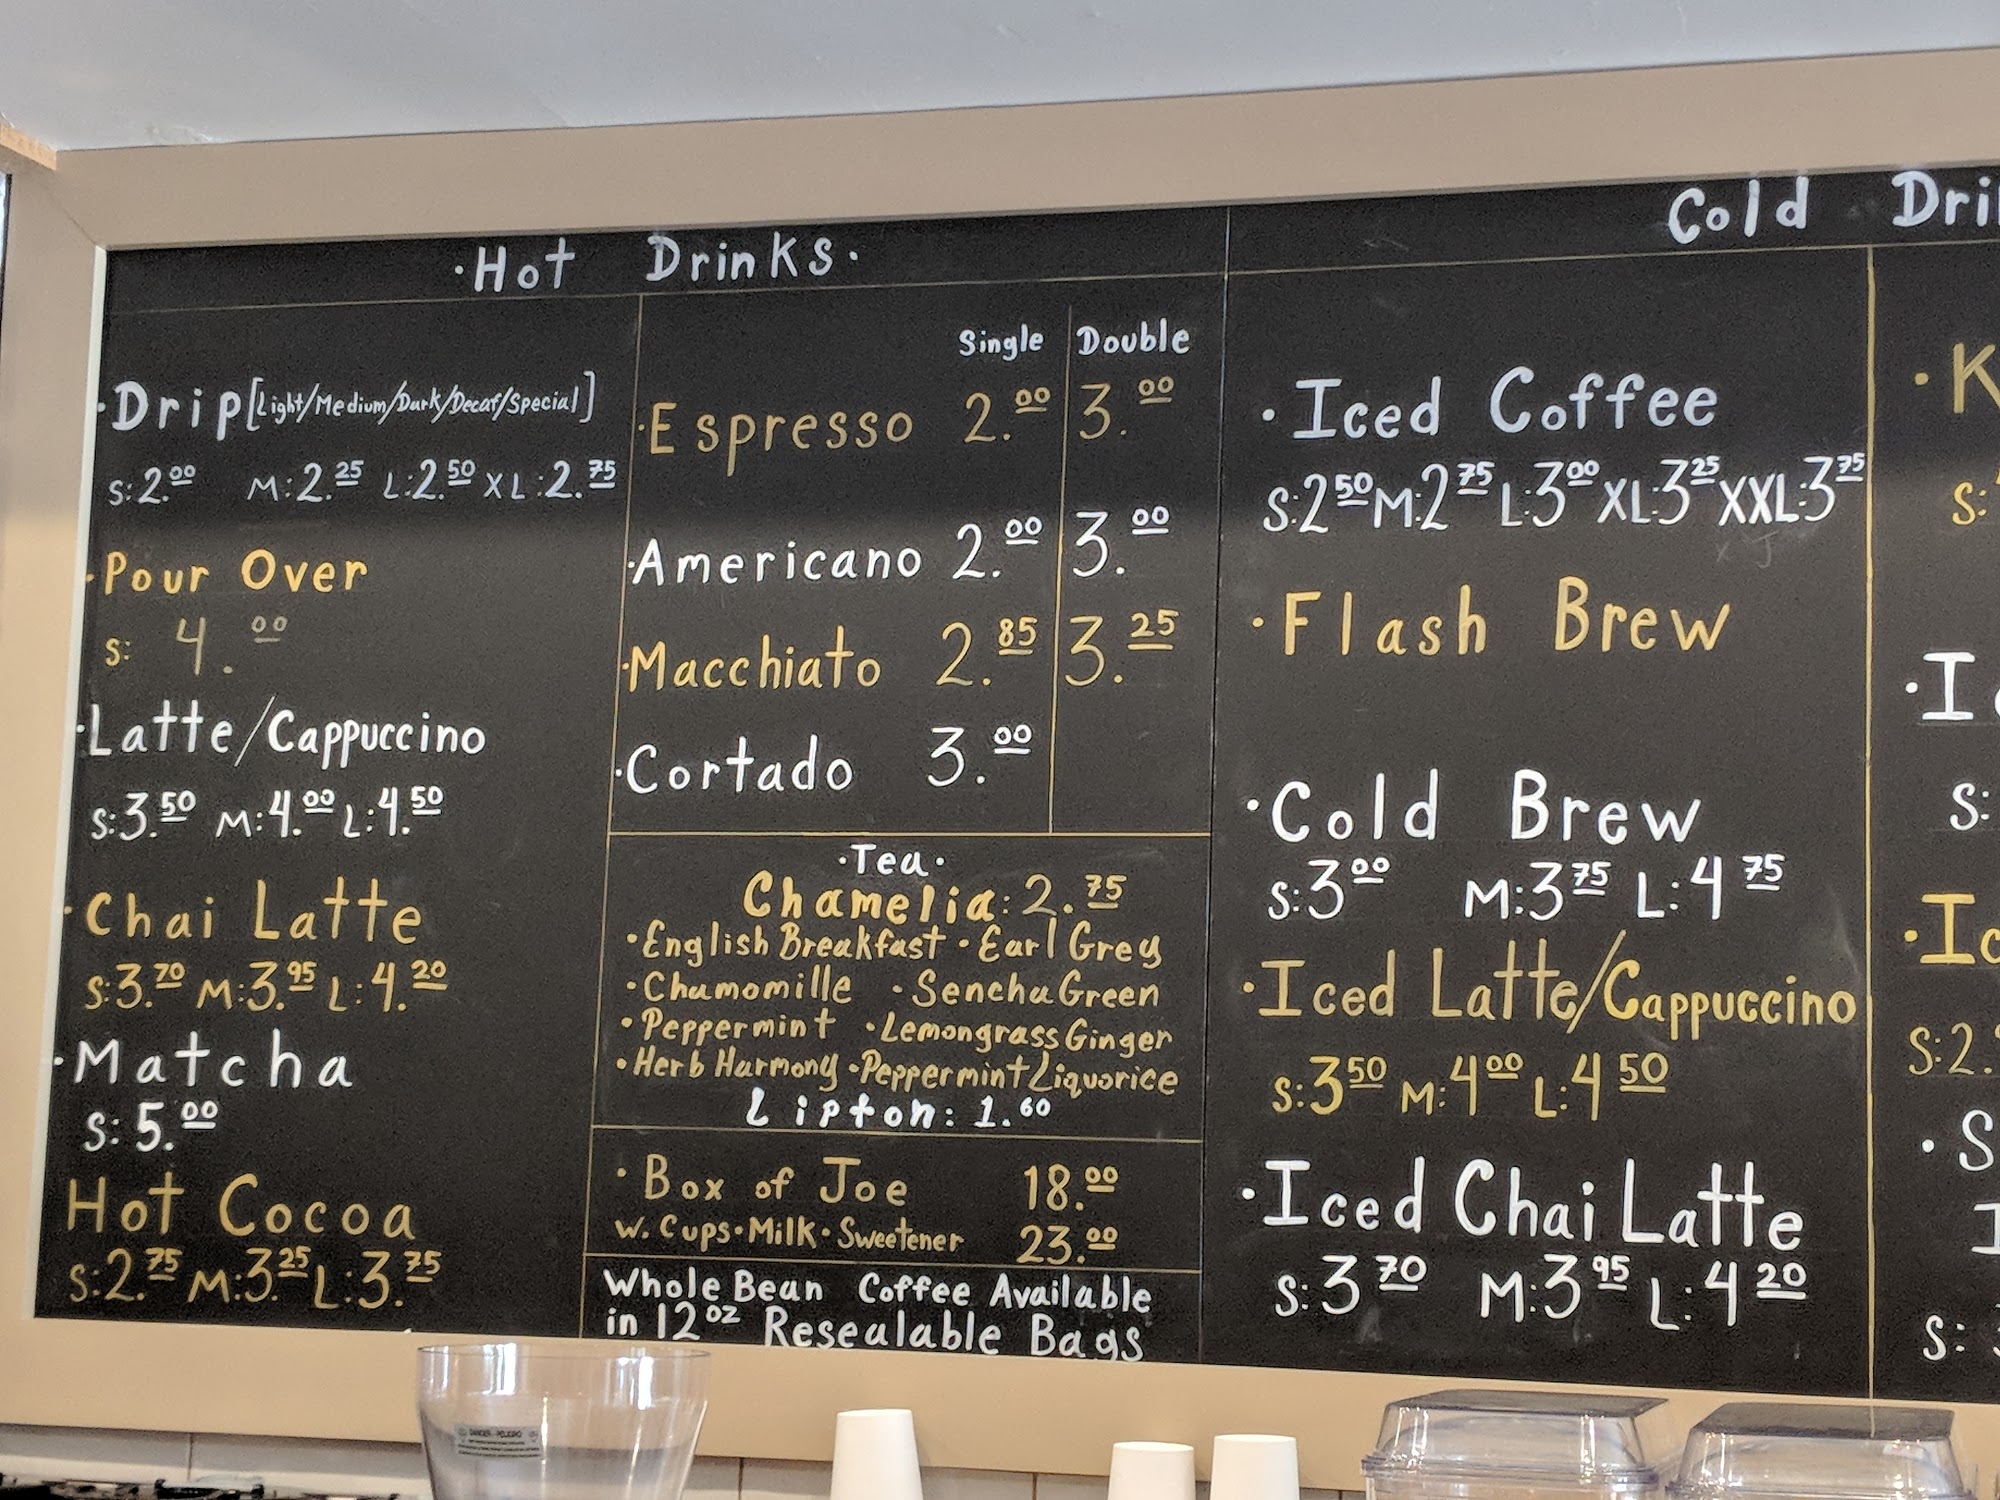 ·Hot Drinks·
·Drip [Light/Medium/Dark/Decaf/Special]
S:2.00 M:2.25 L:2.50 XL:2.75
·Pour Over
S: 4.00
·Latte/Cappuccino
S:3.50 M:4.00 L:4.50
·Chai Latte
S:3.70 M:3.95 L:4.20
·Matcha
S: 5.00
Hot Cocoa
S:2.75 M:3.25 L:3.75
Single Double
·Espresso 2.00 3.00
·Americano 2.00 3.00
·Macchiato 2.85 3.25
·Cortado 3.00
·Tea·
Chamelia: 2.75
·English Breakfast ·Earl Grey
·Chamomille ·Sencha Green
·Peppermint ·Lemongrass Ginger
·Herb Harmony ·Peppermint Liquorice
Lipton: 1.60
·Box of Joe 18.00
w. Cups·Milk·Sweetener 23.00
Whole Bean Coffee Available
in 12oz Resealable Bags
Cold Dri
·Iced Coffee
S:2 50 M:2 75 L:3 00 XL:3 25 XXL:3 75
·Flash Brew
·Cold Brew
S:3 00 M:3 75 L:4 75
·Iced Latte/Cappuccino
S:3 50 M:4 00 L:4 50
·Iced Chai Latte
S:3 70 M:3 95 L:4 20
·K
S:
·I
S:
·Ic
S:2.
·S
I
S:
DANGER - PELIGRO